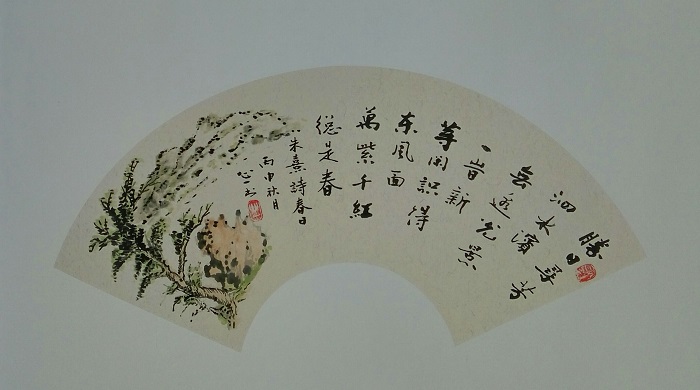 勝日尋芳
泗水濱
無邊光景
一旹新
等閒識得
東風面
萬紫千紅
總是春
朱熹詩春日
丙申秋月